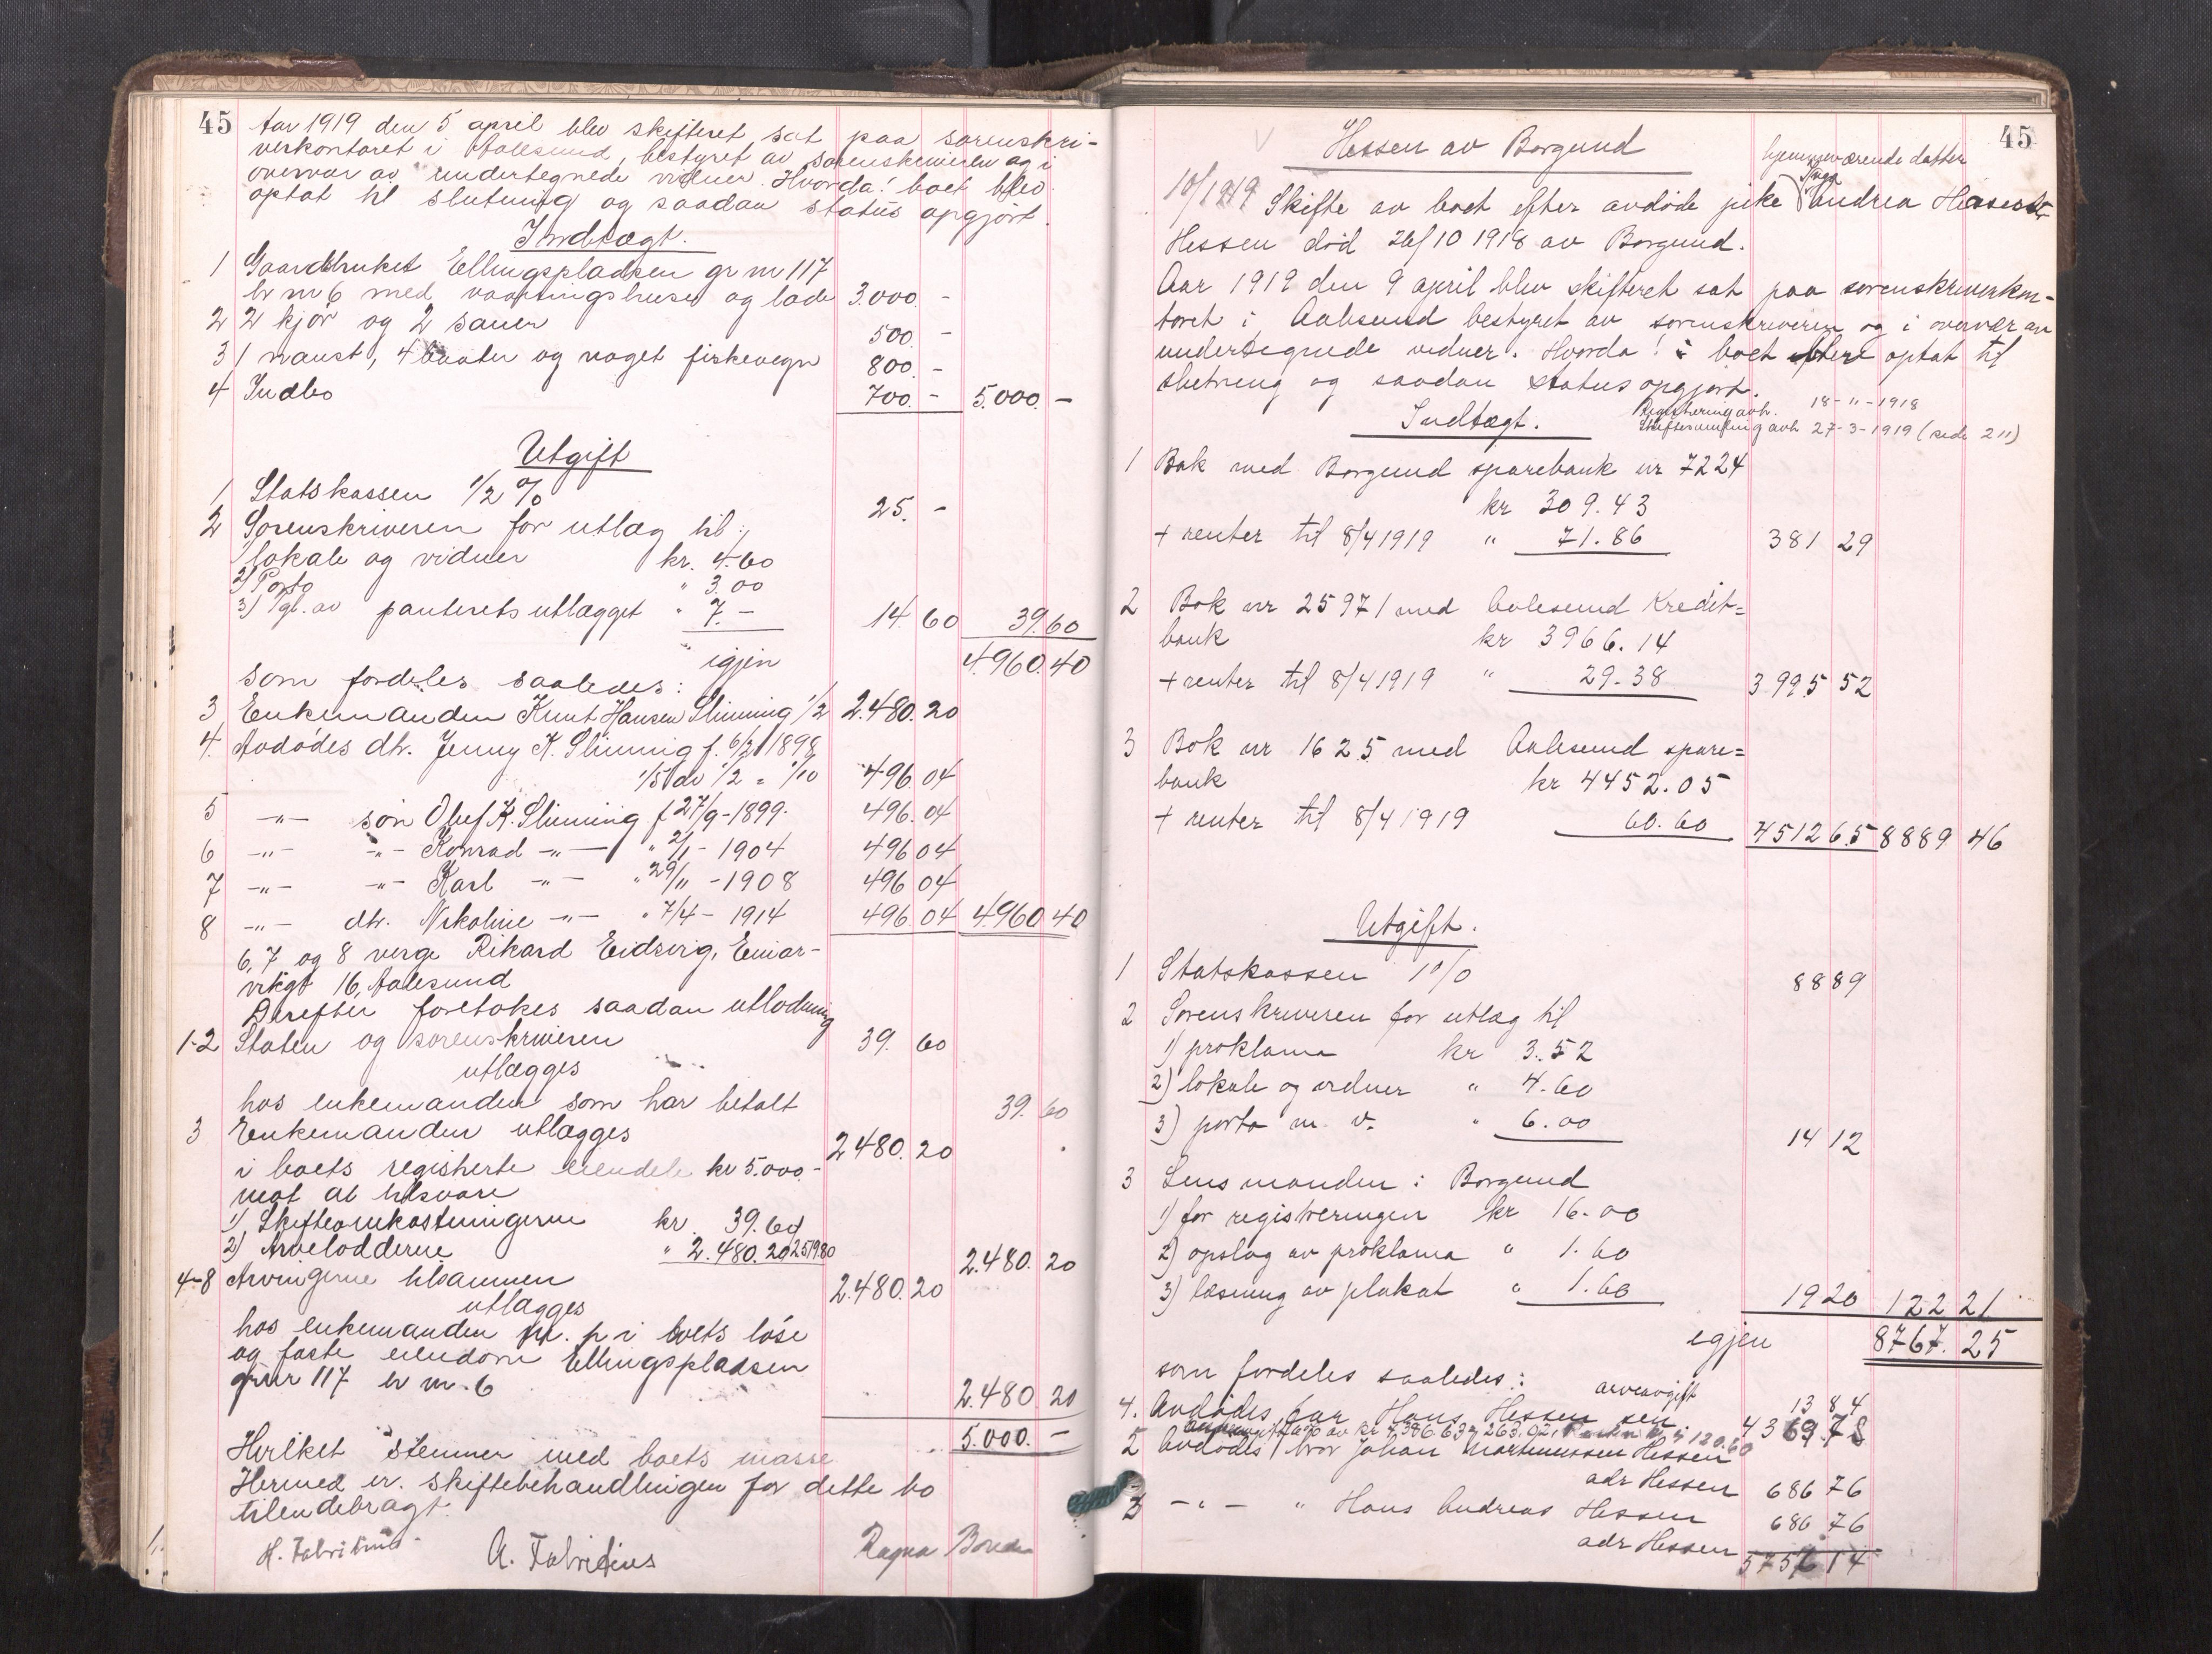 45
Aar 1919 den 5 april blev skifteret sat paa sorenskri-
verkontoret i Aalesund, bestyret av sorenskriveren og i
overvær av undertegnede vidner. Hvorda! boet blev
optat til slutning og saadan status opgjort.
Indtægt.
1 Gaardbruket Ellingspladsen gr nr 117
br nr 6 med vaaningshuse og lade 3.000. -
2 2 kjør og 2 sauer 500. -
3 1 naust, 4 baater og noget fiskevegn 800. -
4 Indbo 700. - 5.000. -
Utgift
1 Statskassen 1/2 % 25. -
2 Sorenskriveren for utlæg til:
1/ lokale og vidner kr. 4.60
2/ Porto " 3.00
3) Tgl. av panterets utlægget " 7. - 14 60 39.60
igjen 4.960.40
som fordeles saaledes:
3 Enkemanden Knut Hansen Slinning 1/2 2.480.20
4. Avdødes dtr. Jenny K. Slinning f. 6/2 1898
1/5 av 1/2 = 1/10 496.04
5 -"- søn Oluf K. Slinning f 27/9-1899. 496.04
6 -"- -"- Konrad -"- " 2/1 - 1904 496 04
7 -"- -"- Karl -"- " 29/11 - 1908 496 04
8 -"- dtr. Nikoline -"- " 7/4 - 1914 496.04 4.960 40
6, 7 og 8 verge Rikard Eidsvig,
16, Aalesund
Derefter foretokes saadan utlodning
1-2 Staten og sorenskriveren 39. 60
utlægges
hos enkemanden som har betalt 39.60
3 Enkemanden utlægges 2480.20
i boets registrerte eiendele kr 5.000.-
mot at tilsvare
1) Skifteomkostningerne kr. 39.60
2) Arvelodderne " 2.480.20 2519.80 2.480.20
4-8 Arvingerne tilsammen 2.480.20
utlægges
hos enkemanden m. p i boets løse
og faste eiendom Ellingspladsen
gr nr 117 br nr. 6 2.480 20
5.000. -
Hvilket stemmer med boets masse
Hermed er skiftebehandlingen for dette bo
tilendebragt.
H. Fabritius A. Fabritius Ragna
45
Hessen av Borgund
hjemmeværende datter
10/1919 Skifte av boet efter avdøde pike Andrea
Hessen død 26/10 1918 av Borgund.
Aar 1919 den 9 april blev skifteret sat paa sorenskriverkon-
toret i Aalesund bestyret av sorenskriveren og i overvær av
undertegnede vidner. Hvorda! boet blev optat til
slutning og saadan status opgjort.
Registrering avh. 18-"-1918
Indtægt. Skiftesamling avh 27-3-1919 (side 211)
1 Bok med Borgund sparebank nr 7224
kr 309.43
+ renter til 8/4 1919 " 71.86 381 29
2 Bok nr 25971 med Aalesund Kredit=
bank kr 3966.14
+ renter til 8/4 1919 " 29.38 3995 52
3 Bok nr 1625 med Aalesund spare=
bank kr 4452.05
+ renter til 8/4 1919 60.60 4512 65 8889 46
Utgift.
1 Statskassen 1 % 88 89
2 Sorenskriveren for utlæg til
1) proklama kr 3.52
2) lokale og vidner " 4.60
3) porto m. v. " 6.00 14 12
3 Lensmanden i Borgund
1) for registreringen kr 16.00
2) opslag av proklama " 1.60
3) læsning av plakat " 1.60 19 20 122 21
igjen 8767. 25
som fordeles saaledes: arveavgift 13 84
4. Avdødes far Hans Hessen sen. 4369.78
5 Avdødes bror Johan Martinussen Hessen
adr Hessen 686 76
-"- " Hans Andreas Hessen 686 76
adr Hessen 14